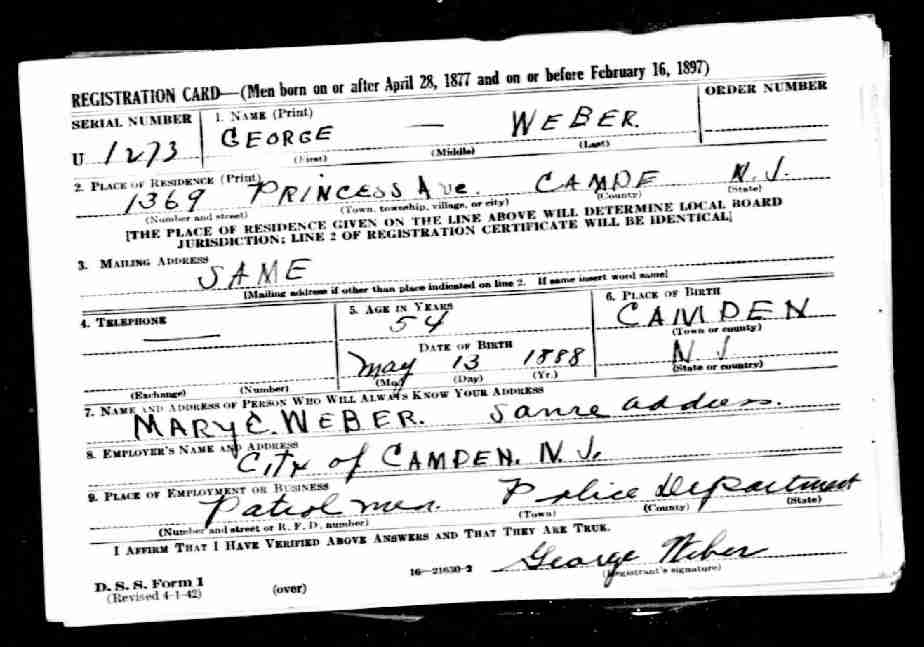 REGISTRATION CARD—(Men born on or after April 28, 1877 and on or before February 16, 1897)
SERIAL NUMBER 1. NAME (Print) ORDER NUMBER
U 1273 GEORGE — WEBER.
(First) (Middle) (Last)
2. PLACE OF RESIDENCE (Print)
1369 PRINCESS Ave. CAMDE N.J.
(Number and street) (Town, township, village, or city) (County) (State)
[THE PLACE OF RESIDENCE GIVEN ON THE LINE ABOVE WILL DETERMINE LOCAL BOARD
JURISDICTION; LINE 2 OF REGISTRATION CERTIFICATE WILL BE IDENTICAL]
3. MAILING ADDRESS
SAME
[Mailing address if other than place indicated on line 2. If same insert word same]
4. TELEPHONE 5. AGE IN YEARS 6. PLACE OF BIRTH
— 54 CAMDEN
(Town or county)
DATE OF BIRTH
May 13 1888 N J
(Exchange) (Number) (Mo.) (Day) (Yr.) (State or country)
7. NAME AND ADDRESS OF PERSON WHO WILL ALWAYS KNOW YOUR ADDRESS
MARY E. WEBER. Same address.
8. EMPLOYER'S NAME AND ADDRESS
CITY of CAMDEN. N. J.
9. PLACE OF EMPLOYMENT OR BUSINESS
Patrol men. Police Department
(Number and street or R. F. D. number) (Town) (County) (State)
I AFFIRM THAT I HAVE VERIFIED ABOVE ANSWERS AND THAT THEY ARE TRUE.
George Weber
D. S. S. Form 1 16—21630-2 (Registrant's signature)
(Revised 4-1-42) (over)